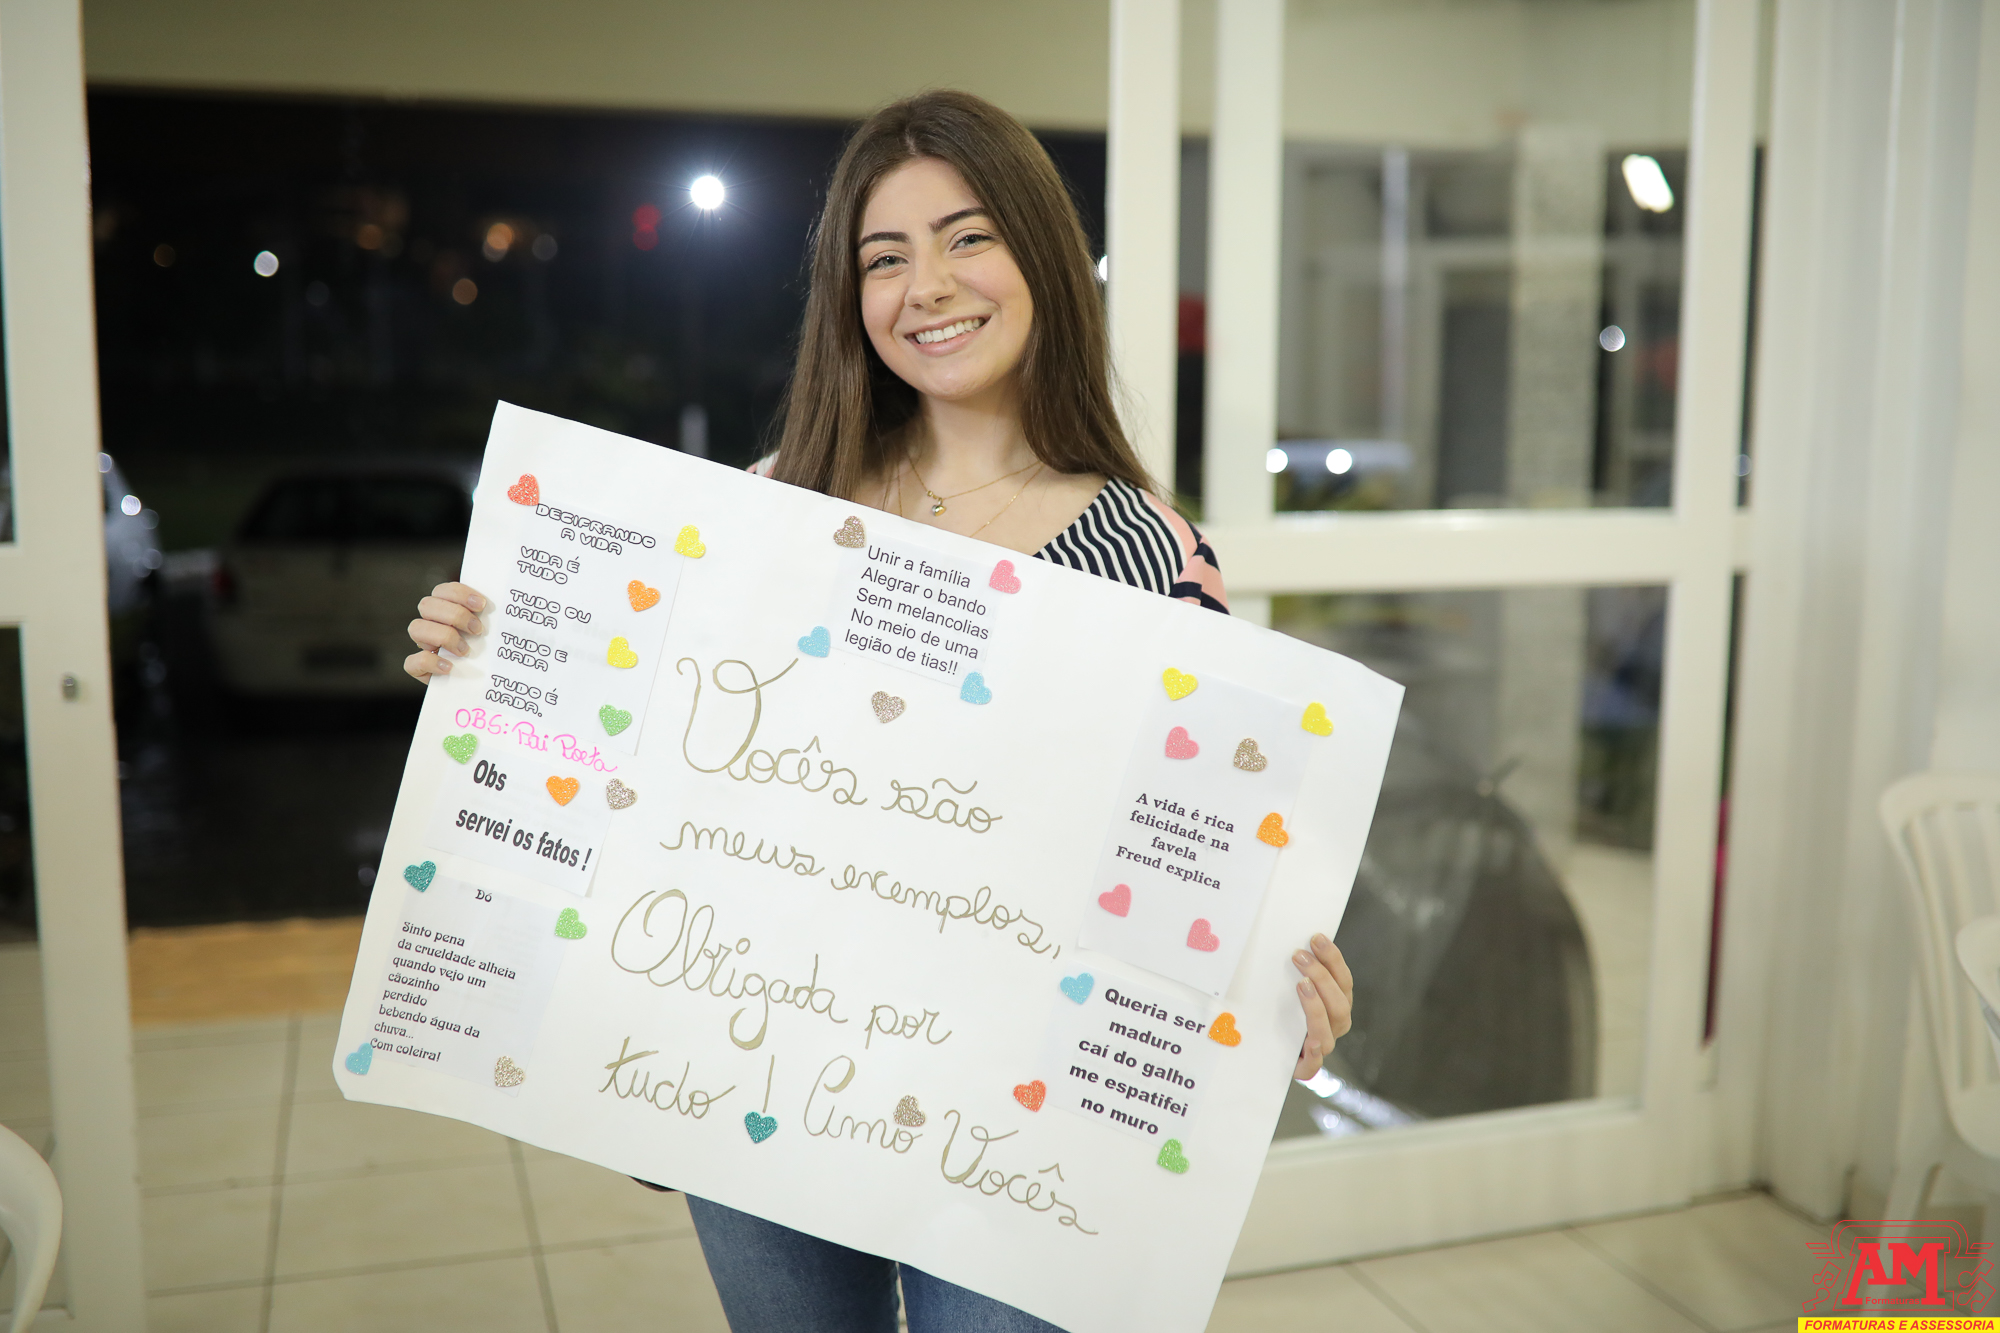 DECIFRANDO
A VIDA
VIDA É
TUDO
TUDO OU
NADA
TUDO E
NADA
TUDO É
NADA.
OBS: Pai Poeta
Obs
servei os fatos !
Dó
Sinto pena
da crueldade alheia
quando vejo um
cãozinho
perdido
bebendo água da
chuva...
Com coleira!
Unir a família
Alegrar o bando
Sem melancolias
No meio de uma
legião de tias!!
Vocês são
meus exemplos,
Obrigada por
tudo! Amo Vocês
A vida é rica
felicidade na
favela
Freud explica
Queria ser
maduro
caí do galho
me espatifei
no muro
AM
Formaturas
FORMATURAS E ASSESSORIA